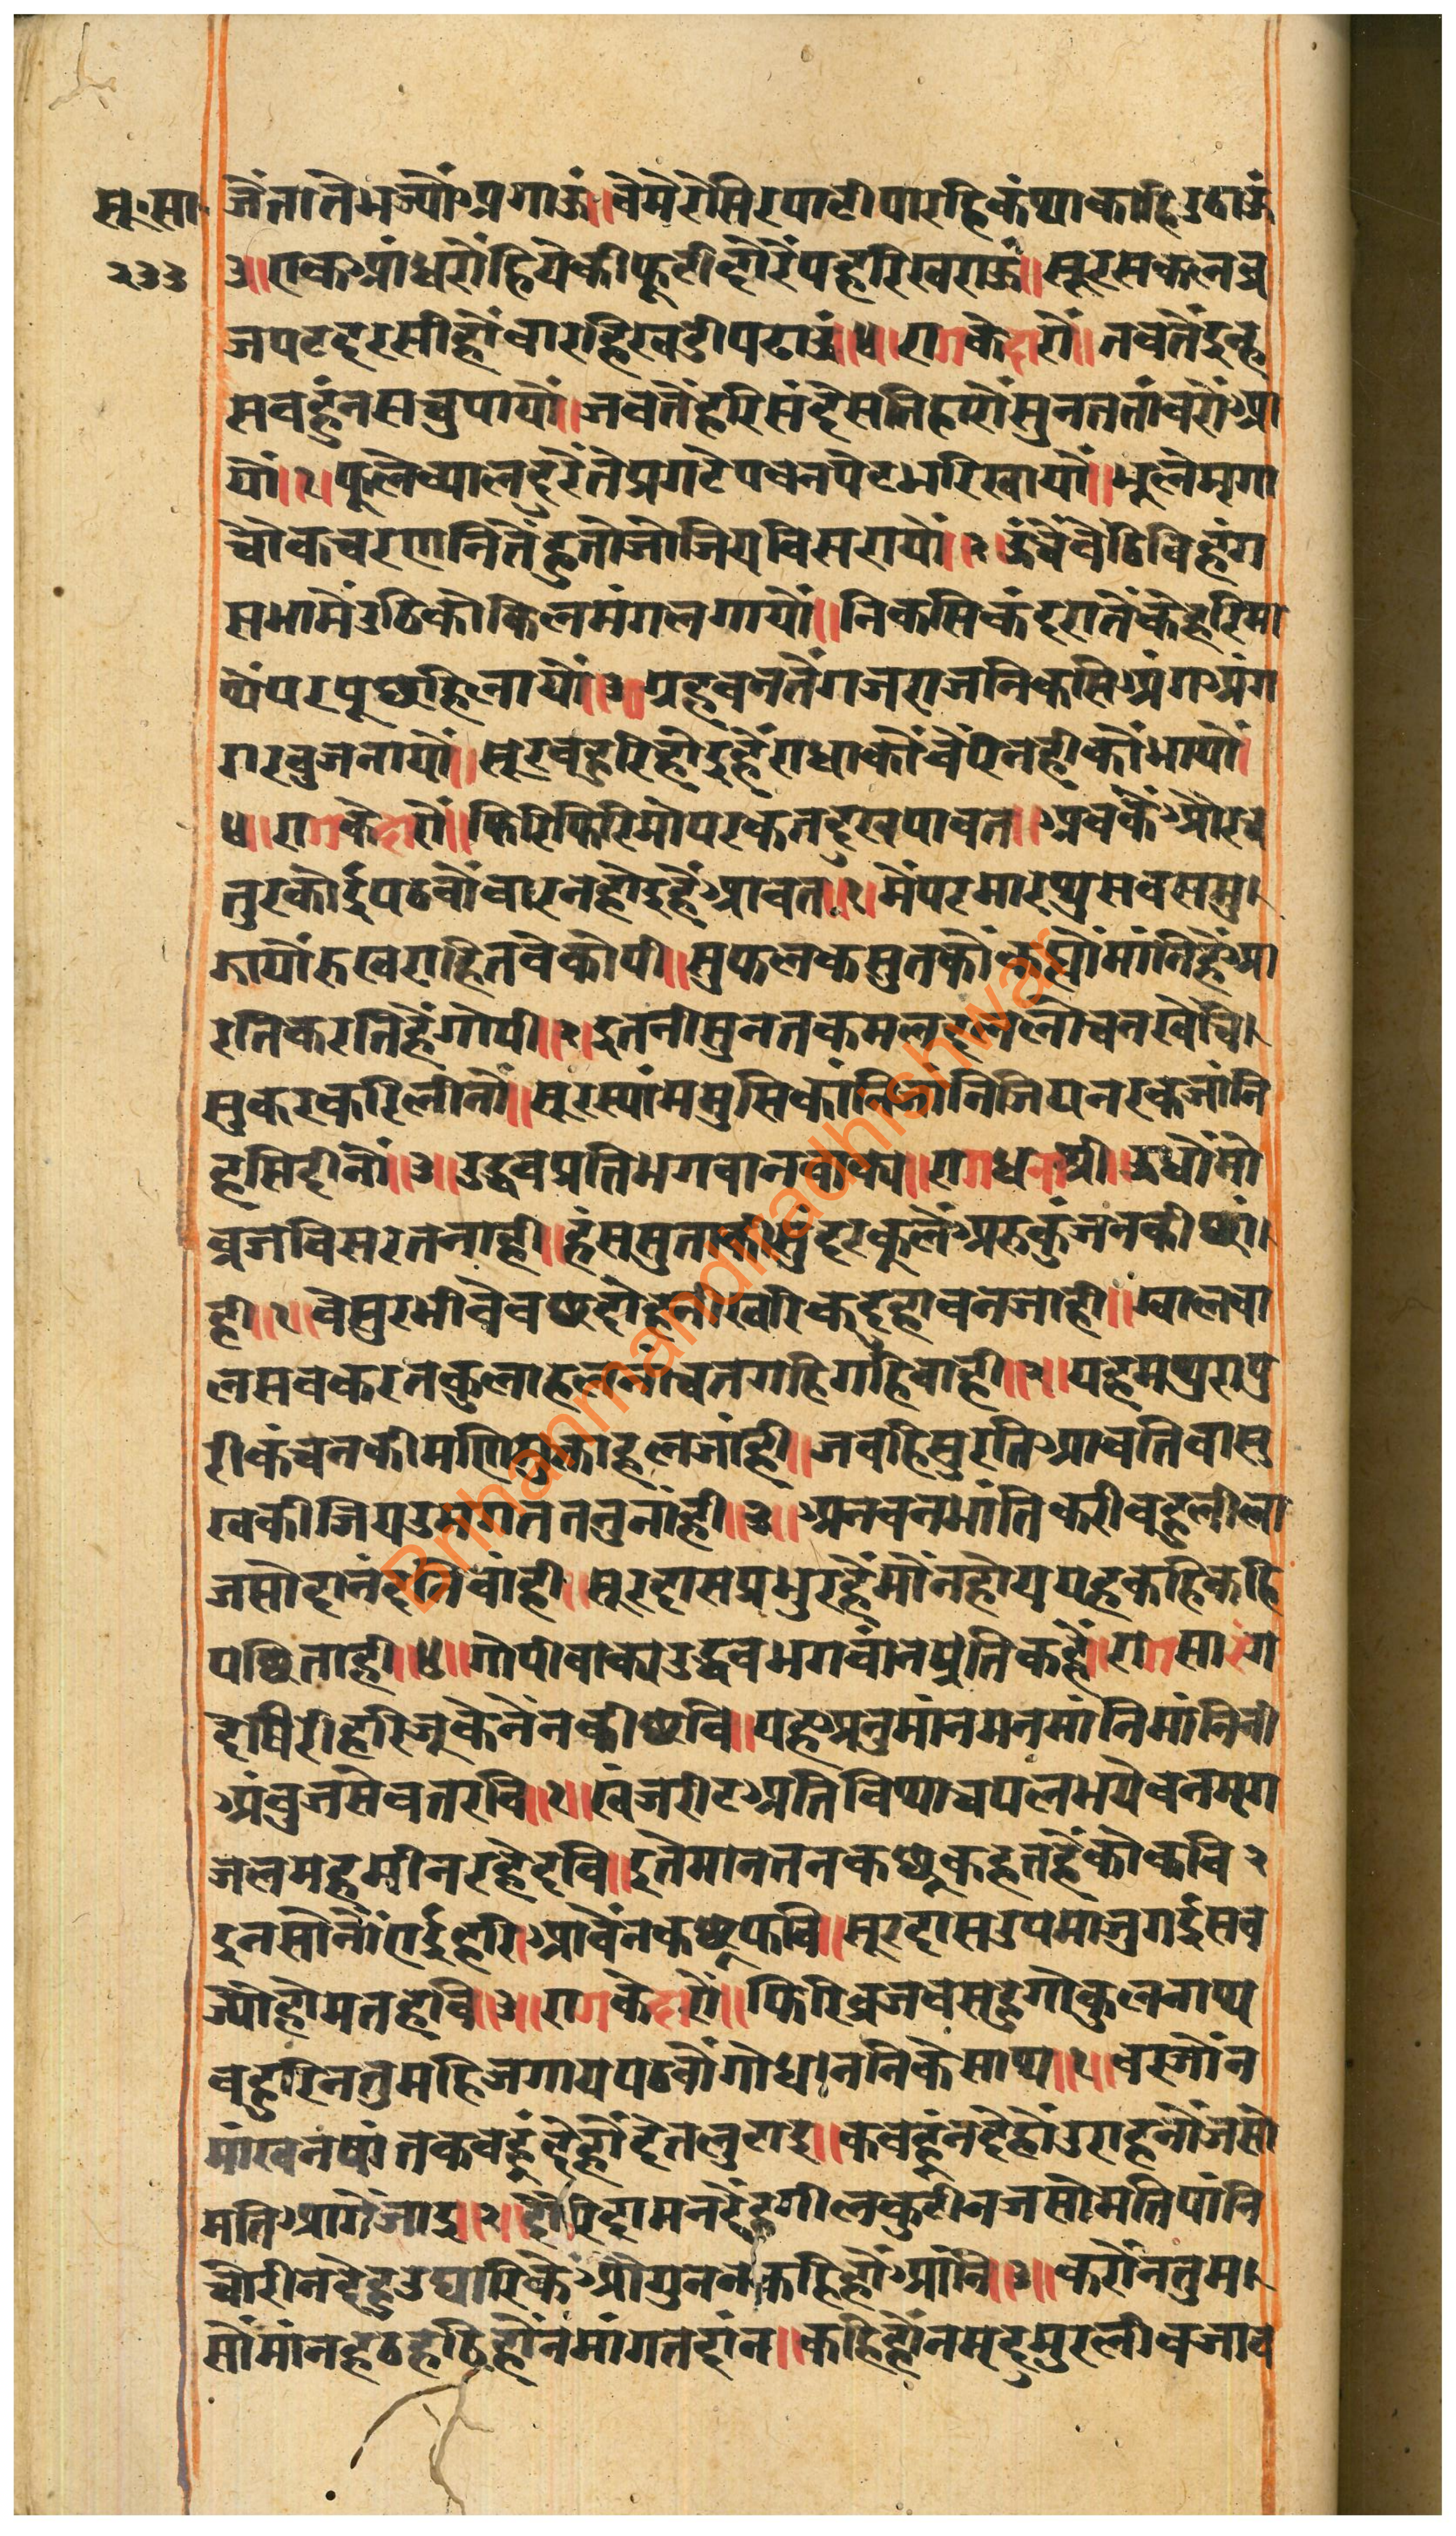 सू.सा. जैनातेभज्यौंअगाऊं॥वेमेरेसिरपाटीपारहिकंथाकाहिउढाऊं
२३३ ३॥एकआंधरौंहियेकीफूटीदौरेंपहरिखराऊं॥सूरसकलब्र
जपटदरसीहौंबारहखडीपढाऊं॥४॥रागकेदारौं॥तबतेंइन्ह
सबहुंनसचुपायौं॥जबतेंहरिसंदेसतिहारौंसुनततांवरौंआ
यौं॥१॥फूलेव्यालदुरेंतेप्रगटेपवनपेटभरिखायौं॥भूलेमृगा
चौकचरणनितेंहुतोजोजियविसरायौं॥२॥ऊंचेंबैठिविहंग
सभामेंउठिकोकिलमंगलगायौं॥निकसिकंदरातेंकेहरिमा
थेंपरपूछहिनायौं॥३॥ग्रहवनतेंगजराजनिकसिअंगअंग
गरबुजनायौं॥सूरबहुरिहौइहैंराधाकौंवैरिनहीकौंभायौं॥
४॥रागकेदारौं॥फिरिफिरिमोपरकतदुखपावत॥अबकैंऔरच
तुरकोईपठवौंबारनहोइहैंआवत॥१॥मैंपरमारथसबसमु
झायौंरुखराहितबेकोपी॥सुफलकसुतकौंकह्यौंमांनिहैंआ
रतिकरतिहैंगोपी॥२॥इतनीसुनतकमलदललोचनखेंचि
सुकरकरिलीनौं॥सूरस्यांममुसिकांनिजांनिजियनरकजांनि
हसिदीनौं॥३॥उद्धवप्रतिभगवानवाक्य॥रागधनाश्री॥ऊधौंमो
व्रजविसरतनाही॥हंससुताकीसुंदरकूलेंअरुकुंजनकीछां
ही॥१॥वेसुरभीवेवछदोहनींखरिकदुहावनजांही॥ग्वालबा
लसबकरतकुलाहलनांचतगहिगहिबांही॥२॥यहमथुरापु
रीकंचनकीमणिमुक्ताहलजांही॥जबहिसुरतिआवतिवासु
खकीजियउमगततनुनांही॥३॥अनवनभांतिकरीबहुलीला
जसोदानंदनिबांही॥सूरदासप्रभुरहैंमौंनहोययहकहिकहि
पछिताही॥४॥गोपीवाक्यउद्धवभगवांनप्रतिकहै॥रागसारंग
देषिरीहरिजूकेनैनकीछवि॥यहअनुमांनमनमांनिमांनिनी
अंबुजसेवतरवि॥१॥खंजरीटअतिविथाचपलभयेवनमृग
जलमहमीनरहेदवि॥इतेमानतनकछूकहतहैंकोकवि२
इनसोंनौंएईहरिआवेंनकछूफवि॥सूरदासउपमाजुगईसब
ज्योंहोमतहवि॥३॥रागकेदारौं॥फिरिव्रजवसहुगोकुलनाथ
बहुरिनतुमहिजगायपठवौंगोधननिकेसाथ॥१॥बरजौंन
मांखनषांतकबहूंदेहौंदेतलुटाइ॥कबहूंनदेहौंउराहनौंजसो
मतिआगेंजाइ॥२॥दौरिदामनदेंहुगीलकुटीनजसोमतिपांनि
चोरीनदेहुउघारिकैंऔगुननकहिहौंआंनि॥३॥करौंनतुम
सौंमांनहठहठिहौंनमांगतदांन॥कहिहौंनमृदुमुरलीबजाव